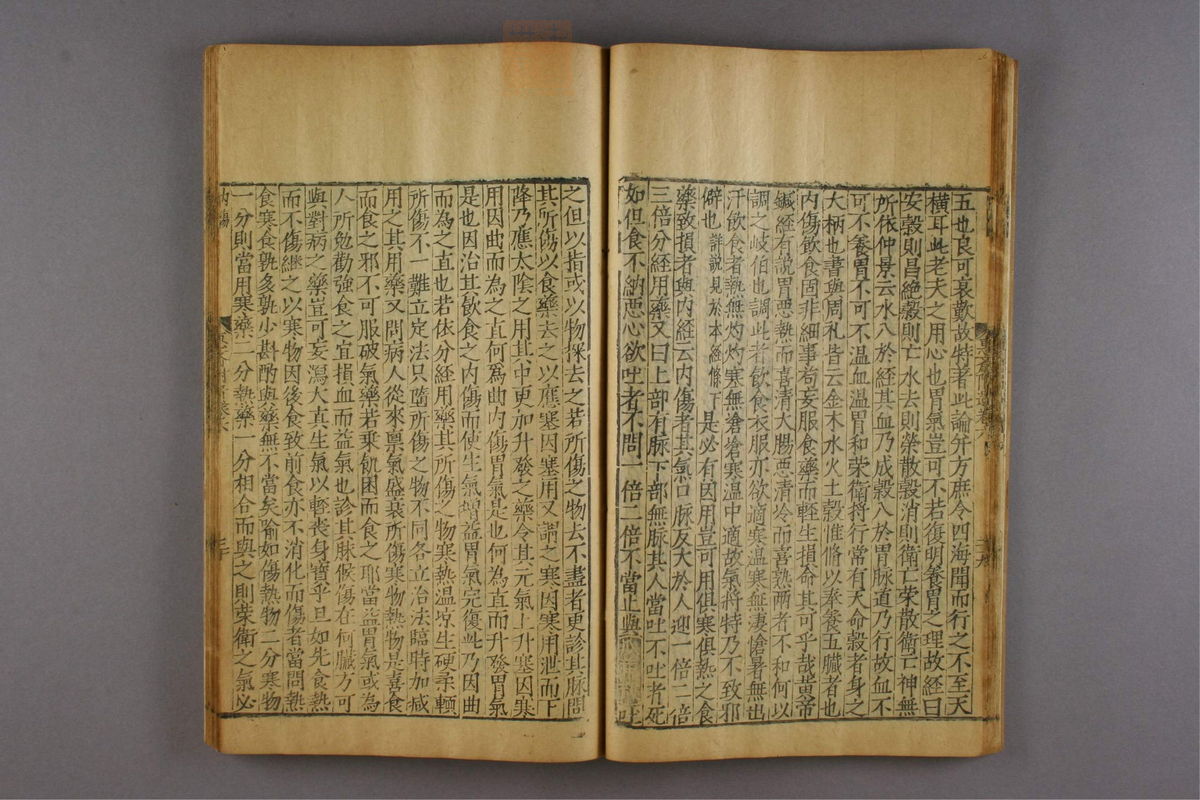 五也良可哀歎故特著此論并方庶令四海聞而行之不至夭
橫耳此老夫之用心也胃氣豈可不若復明養胃之理故經曰
安穀則昌絶穀則亡水去則榮散穀消則衛亡榮散衛亡神無
所依仲景云水入於經其血乃成穀入於胃脉道乃行故血不
可不養胃不可不温血温胃和榮衛將行常有天命穀者身之
大柄也書與周礼皆云金木水火土穀惟脩以奉養五臟者也
内傷飲食固非細事苟妄服食藥而輕生損命其可乎哉黄帝
鍼經有説胃惡熱而喜清大腸惡清冷而喜熱兩者不和何以
調之岐伯曰調此者飲食衣服亦欲適寒温寒無凄愴暑無出
汗飲食者熱無灼灼寒無滄滄寒温中適故氣將持乃不致邪
僻也詳説見於本經條下是必有因用豈可用俱寒俱熱之食
藥致損者與内經云内傷者其氣口脉反大於人迎一倍二倍
三倍分經用藥又曰上部有脉下部無脉其人當吐不吐者死
如但食不納惡心欲吐者不問一倍二倍不當正與
之但以指或以物探去之若所傷之物去不盡者更診其脉問
其所傷以食藥去之以應塞因塞用又謂之寒因寒用泄而下
降乃應太陰之用其中更加升發之藥令其元氣上升塞因寒
用因曲而為之直何爲曲内傷胃氣是也何為直而升發胃氣
是也因治其飲食之内傷而使生氣增益胃氣完復此乃因曲
而為之直也若依分經用藥其所傷之物寒熱温凉生硬柔軟
所傷不一難立定法只隨所傷之物不同各立治法臨時加减
用之其用藥又問病人從來禀氣盛衰所傷寒物熱物是喜食
而食之邪不可服破氣藥若乘飢困而食之耶當益胃氣或為
人所勉勸強食之宜損血而益氣也診其脉候傷在何臟方可
與對病之藥豈可妄瀉天真生氣以輕喪身寶乎且如先食熱
而不傷繼之以寒物因後食致前食亦不消化而傷者當問熱
食寒食孰多孰小斟酌與藥無不當矣喻如傷熱物二分寒物
一分則當用寒藥二分熱藥一分相合而與之則榮衛之氣必